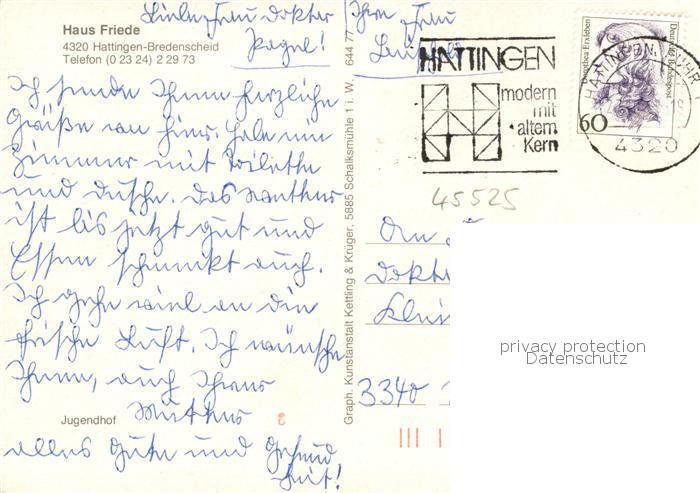 Haus Friede
4320 Hattingen-Bredenscheid
Telefon (0 23 24) 2 29 73
Liebe Frau Dokter
Ihre Frau
Ich sende Ihnen herzliche
Grüße von hier. Habe ein
Zimmer mit Toilette
und Dusche. Das Wetter
ist bis jetzt gut und
Essen schmeckt auch.
Ich gehe viel an die
frische Luft. Ich wünsche
Ihnen, auch Ihrer
Mutter
alles Gute und Gesund
heit!
Jugendhof
8
Graph. Kunstanstalt Kettling & Krüger, 5885 Schalksmühle 1 i. W. 644 77
HATTINGEN
modern
mit
altem
Kern
Dorothea Erxleben
Deutsche Bundespost
60
HATTINGEN, RUHR
4320
45525
An
Dokter
3340
privacy protection
Datenschutz